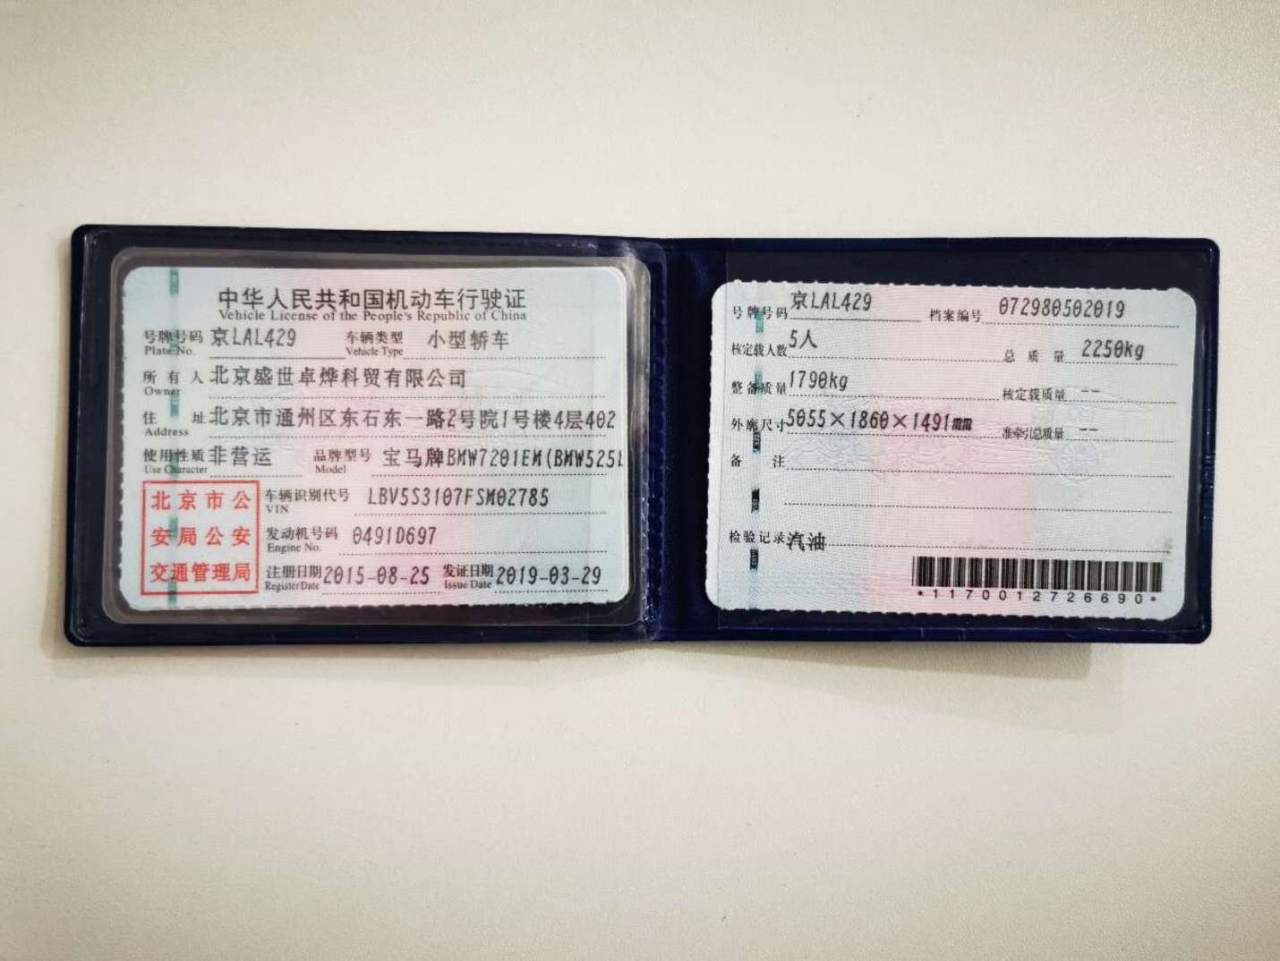 中华人民共和国机动车行驶证
Vehicle License of the People's Republic of China
号牌号码 京LAL429 车辆类型 小型轿车
Plate No. Vehicle Type
所有人 北京盛世卓烨科贸有限公司
Owner
住址 北京市通州区东石东一路2号院1号楼4层402
Address
使用性质 非营运 品牌型号 宝马牌BMW7201EM(BMW525L
Use Character Model
北京市公
安局公安
交通管理局
车辆识别代号 LBV5S3107FSM02785
VIN
发动机号码 0491D697
Engine No.
注册日期 2015-08-25 发证日期 2019-03-29
Register Date Issue Date
号牌号码 京LAL429 档案编号 072980502019
核定载人数 5人 总质量 2250kg
整备质量 1790kg 核定载质量 --
外廓尺寸 5055×1860×1491mm 准牵引总质量 --
备注
检验记录 汽油
*1170012726690*